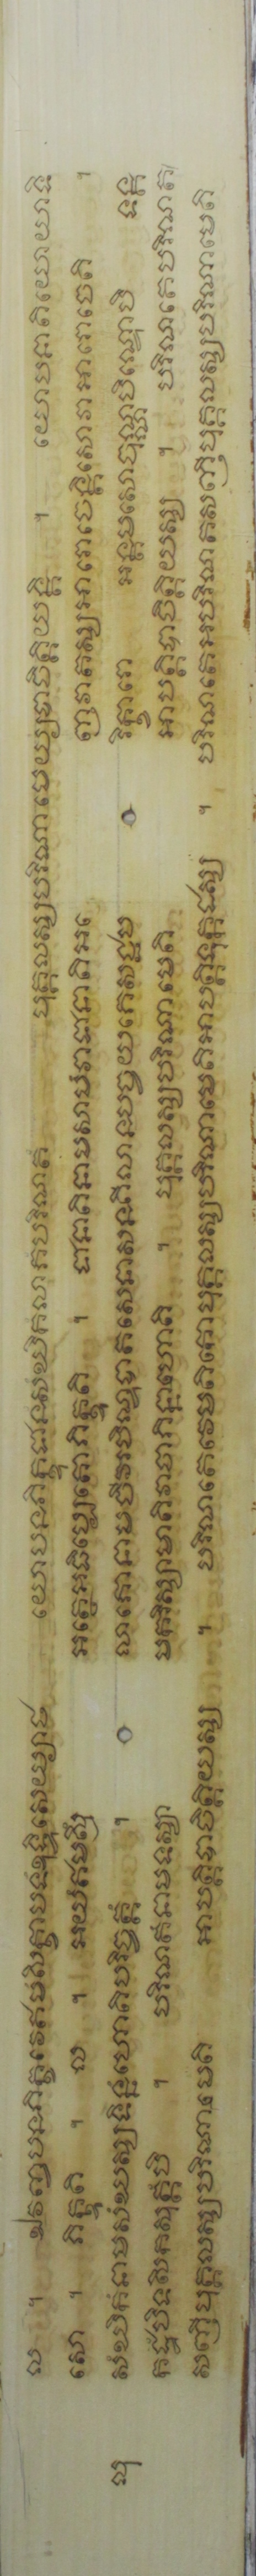 ល ។ ឯវញ្ចបនភិក្ខវេឥមំសិក្ខាបទំឧទ្ទិសេយ្យាថ យោបនភិក្ខុជានំសំឃិកំលាភំបរិណតំ បុគ្គលស្សបរិណាមេយ្យបាចិត្តិយន្តិ ។ យោបនាតិយោយាទិ
សោ ។ ភិក្ខូតិ ។ ល ។ អយំឥមស្មឹ អត្ថេអធិប្បេតោភិក្ខូតិ ។ ជានាតិនាមសាមំវាជានាតិអេ ញវាតស្សអារោចេន្តិសោវាអារោចេតិ ។
ឞុ សំឃិកំនាមសំឃស្សទិន្នំហោតិបរិច្ចត្តំ ។ លាភោនាមចីវរបិណ្ឌបាតសេនាសនគិលានបច្ចយភេសជ្ជប រិក្ខារា អន្តមសោចុណ្ណបិណ្ឌោបិ ទន្ត
កដ្ឋំបិទសិកសុត្តំបិ ។ បរិណតំនាមទស្សា មករិស្សាមាតិវាចាភិន្នាហោតិ ។ បុគ្គលស្សបរិណាមេតិ អាបត្តិបាចិត្តិយស្ស ។ បរិណតេបរិណត
សញ្ញីបុគ្គលស្សបរិណាមេតិ អាបត្តិបាចិត្តិយស្ស ។ បរិណតេវេមតិកោបុគ្គលស្សបរិណាមេតិអាបត្តិទុក្កដស្ស ។ បរិណតេអបរិណតសញ្ញីបុគ្គលស្សបរិណាមេតិ